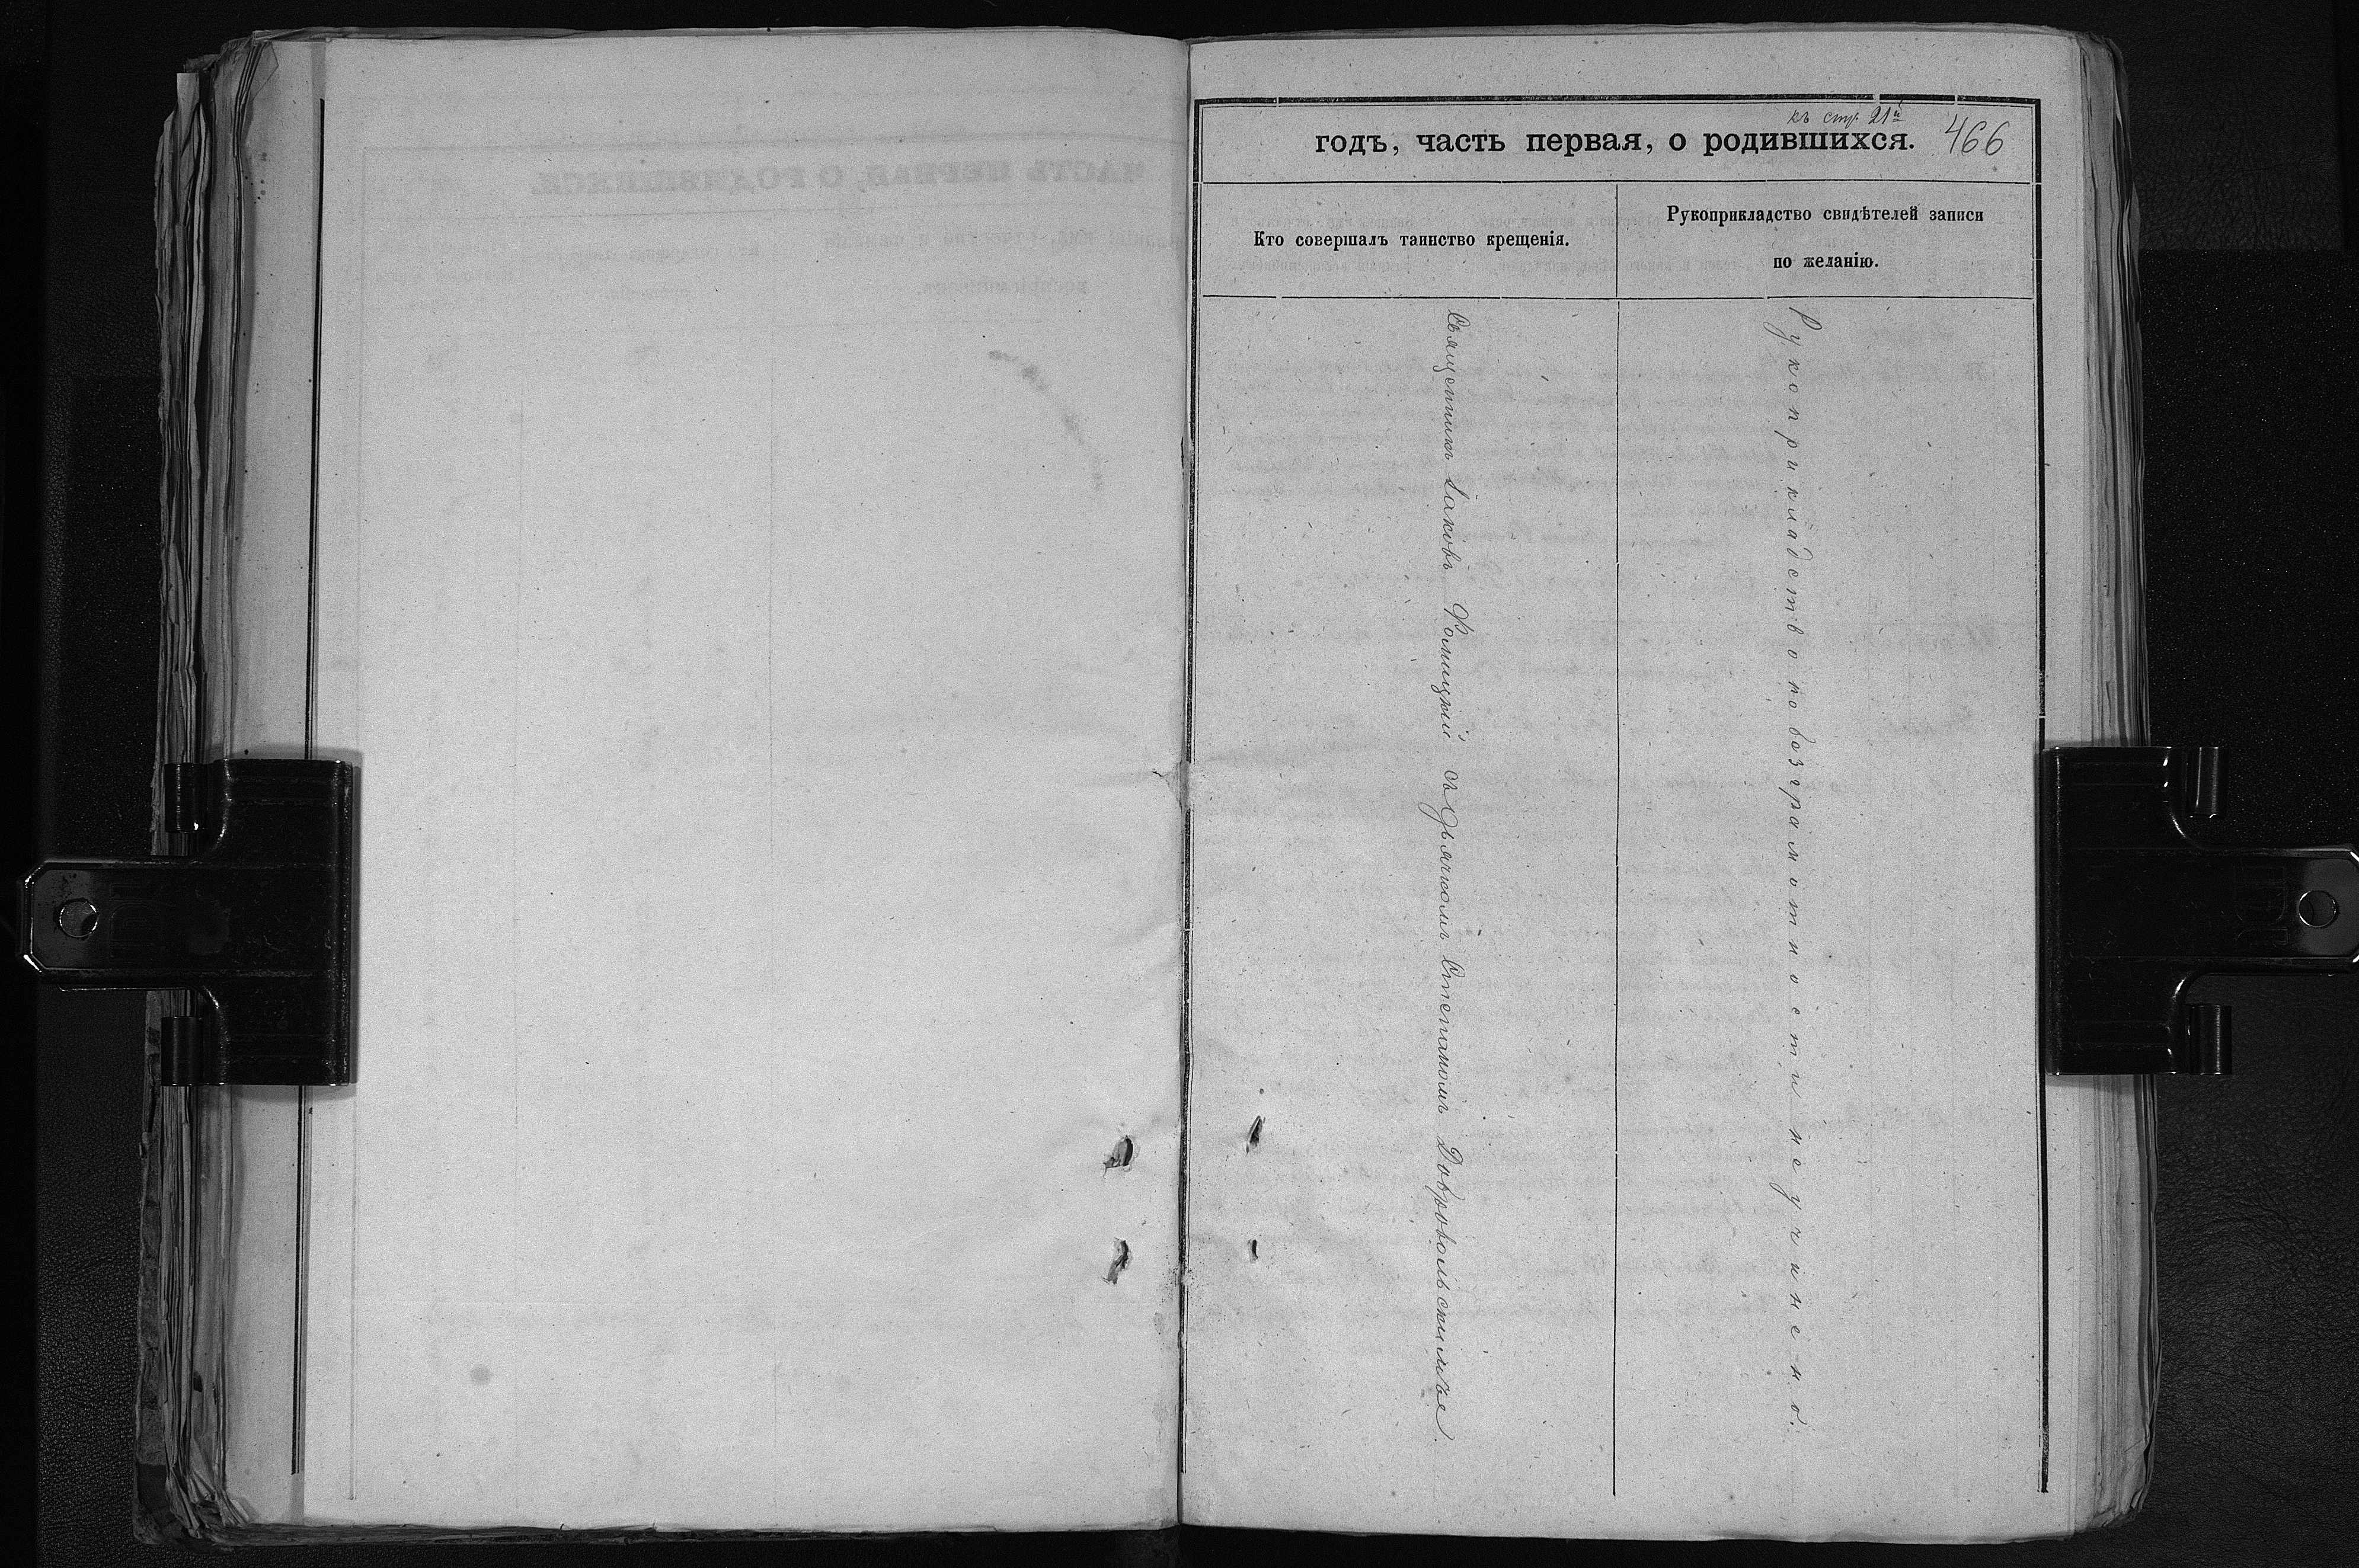 къ стр. 21й
годъ, часть первая, о родившихся. 466
Кто совершалъ таинство крещенія.
Рукоприкладство свидѣтелей записи
по желанію.
Священникъ Іаковъ Фомицкій съ Дьячкомъ Степаномъ Добровольскимъ.
Рукоприкладство по безграмотности не учинено.